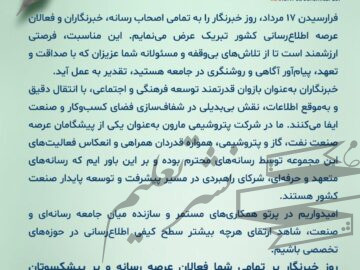 فرارسیدن ۱۷ مرداد، روز خبرنگار را به تمامی اصحاب رسانه، خبرنگاران و فعالان
عرصه اطلاع‌رسانی کشور تبریک عرض می‌نمایم. این مناسبت، فرصتی
ارزشمند است تا از تلاش‌های بی‌وقفه و مسئولانه شما عزیزان که با صداقت و
تعهد، پیام‌آور آگاهی و روشنگری در جامعه هستید، تقدیر به عمل آید.
خبرنگاران به‌عنوان بازوان قدرتمند توسعه فرهنگی و اجتماعی، با انتقال دقیق
و به‌موقع اطلاعات، نقش بی‌بدیلی در شفاف‌سازی فضای کسب‌وکار و صنعت
ایفا می‌کنند. ما در شرکت پتروشیمی مارون به‌عنوان یکی از پیشگامان عرصه
صنعت نفت، گاز و پتروشیمی، همواره قدردان همراهی و انعکاس فعالیت‌های
این مجموعه توسط رسانه‌های محترم بوده و بر این باور ایم که رسانه‌های
متعهد و حرفه‌ای، شرکای راهبردی در مسیر پیشرفت و توسعه پایدار صنعت
کشور هستند.
امیدواریم در پرتو همکاری‌های مستمر و سازنده میان جامعه رسانه‌ای و
صنعت، شاهد ارتقای هرچه بیشتر سطح کیفی اطلاع‌رسانی در حوزه‌های
تخصصی باشیم.
روز خبرنگار بر تمامی شما فعالان عرصه رسانه و بر پیشکسوتان